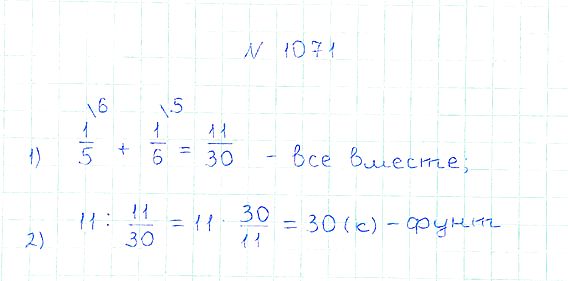 N 1071
1) 1/5 \6 + 1/6 \5 = 11/30 - все вместе;
2) 11 : 11/30 = 11 · 30/11 = 30 (к) - фунт